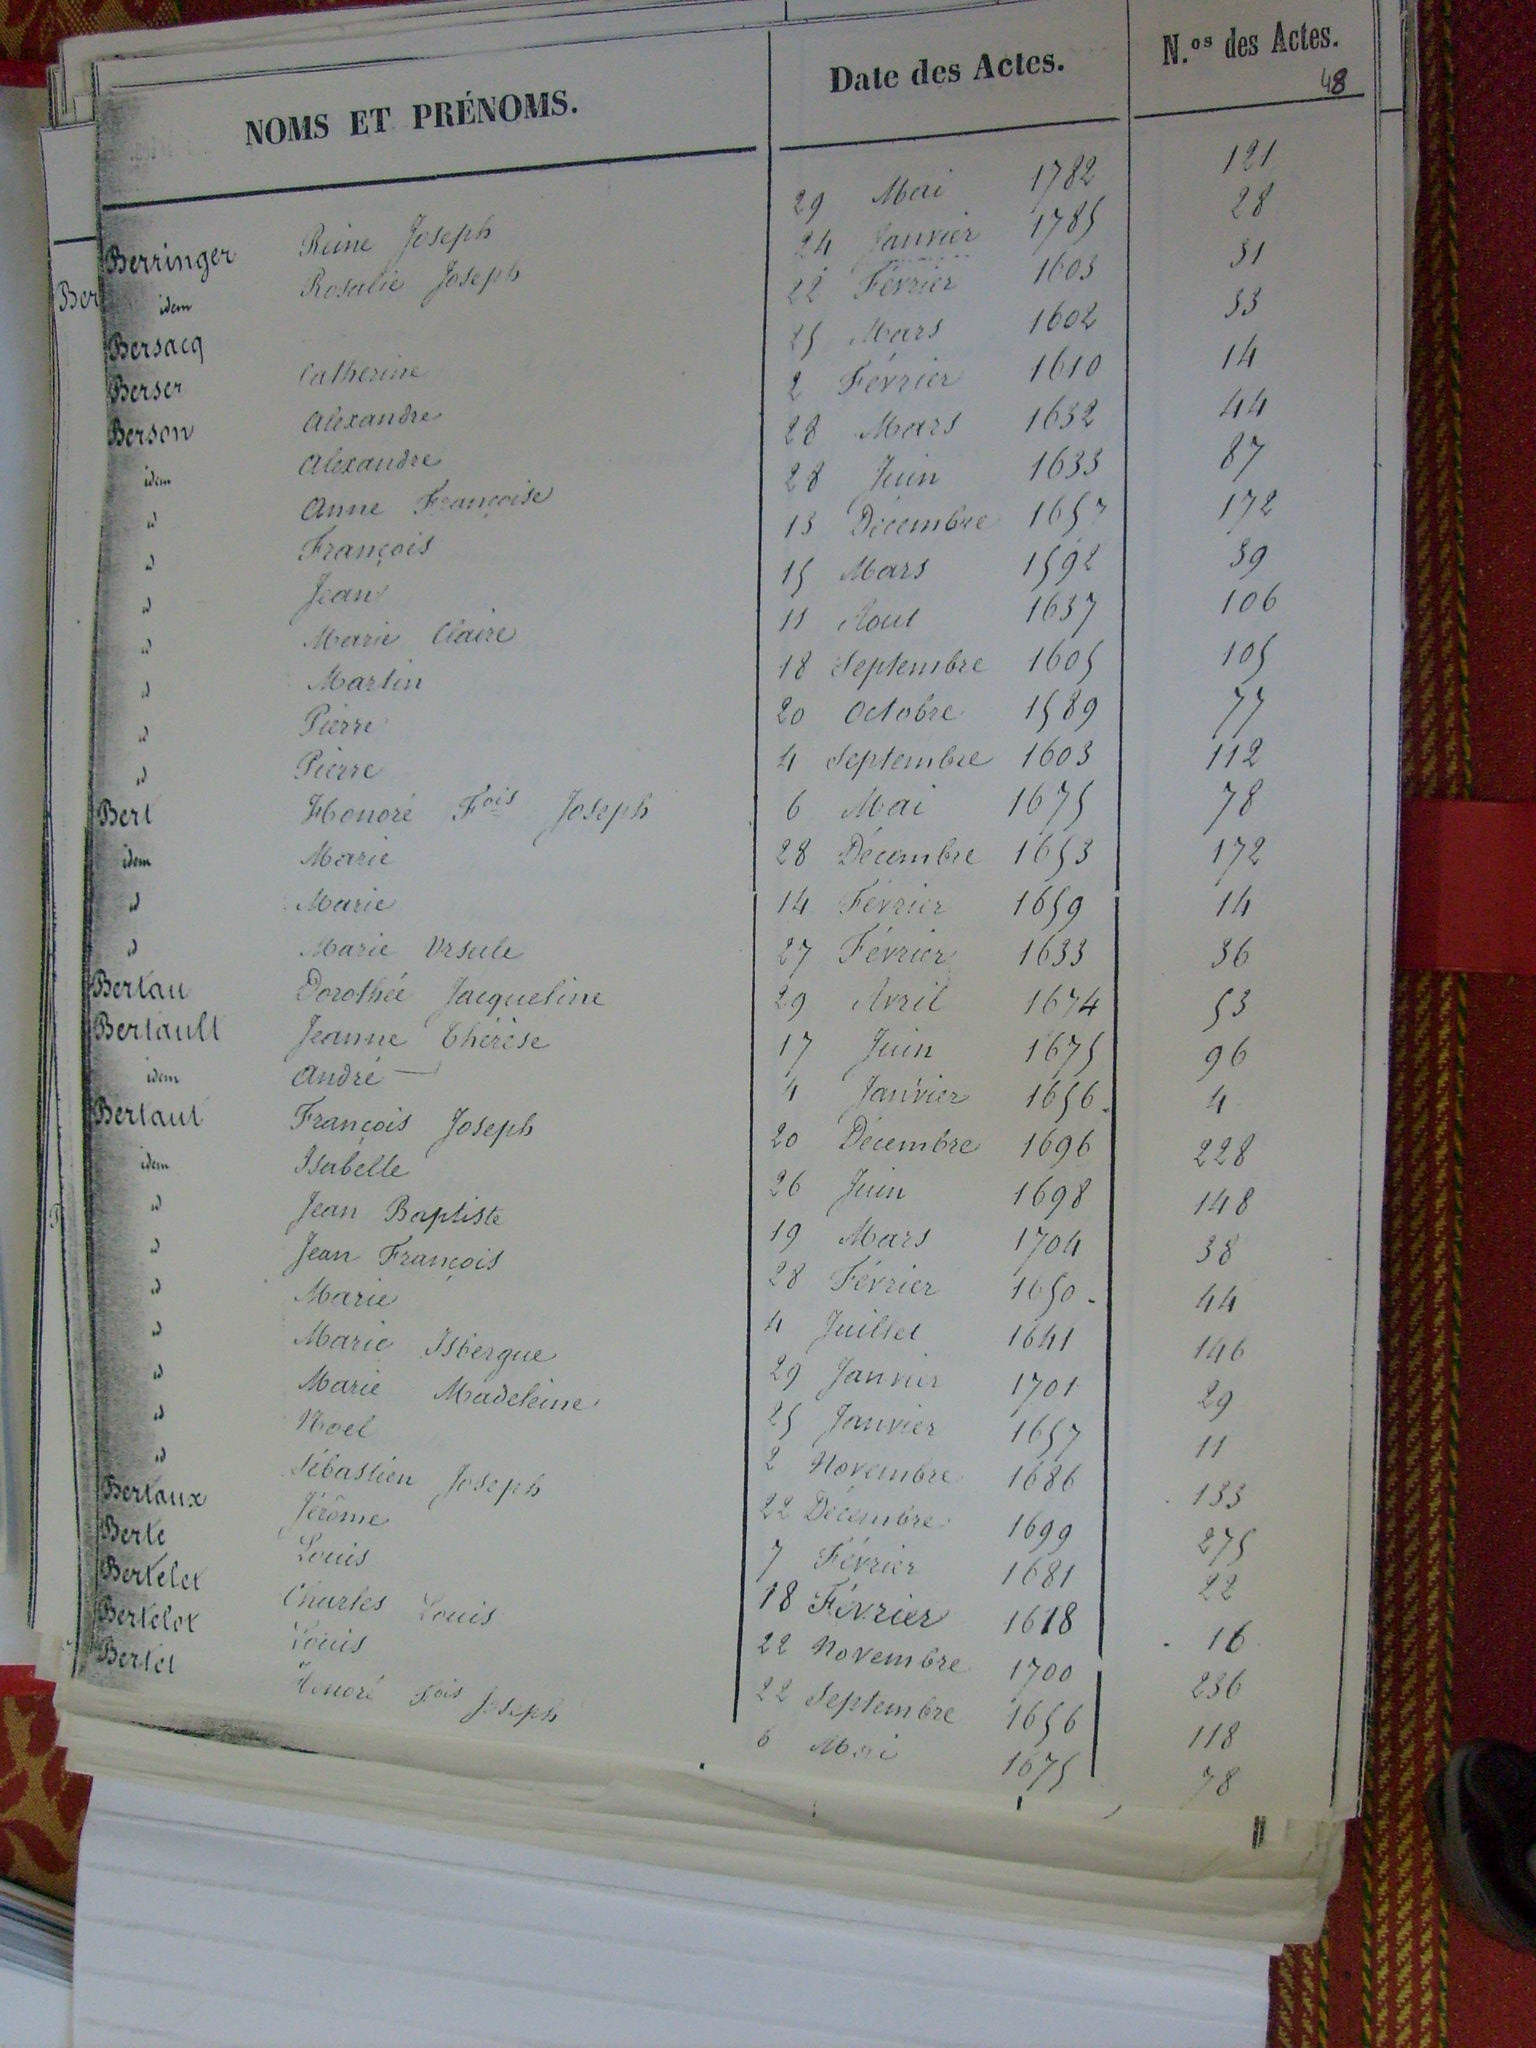 NOMS ET PRÉNOMS. Date des Actes. N.os des Actes.
48
Berringer Reine Joseph 29 Mai 1782 121
idem Rosalie Joseph 24 Janvier 1785 28
Bersacq 22 Février 1603 31
Berser Catherine 25 Mars 1602 33
Berson Alexandre 2 Février 1610 14
idem Alexandre 28 Mars 1632 44
id Anne Françoise 28 Juin 1633 87
id François 13 Décembre 1657 172
id Jean 15 Mars 1592 39
id Marie Claire 11 Aout 1637 106
id Martin 18 Septembre 1605 105
id Pierre 20 Octobre 1589 77
id Pierre 4 Septembre 1603 112
Bert Honoré Fois Joseph 6 Mai 1675 78
idem Marie 28 Décembre 1653 172
id Marie 14 Février 1659 14
id Marie Ursule 27 Février 1633 36
Bertau Dorothée Jacqueline 29 Avril 1674 53
Bertault Jeanne Thérèse 17 Juin 1675 96
idem André 4 Janvier 1656 4
Bertaut François Joseph 20 Décembre 1696 228
idem Isabelle 26 Juin 1698 148
id Jean Baptiste 19 Mars 1704 38
id Jean François 28 Février 1650 44
id Marie 4 Juillet 1641 146
id Marie Isbergue 29 Janvier 1701 29
id Marie Madeleine 25 Janvier 1657 11
id Noel 2 Novembre 1686 133
id Sébastien Joseph 22 Décembre 1699 275
Bertaux Jérôme 7 Février 1681 22
Berte Louis 18 Février 1618 16
Bertelet Charles Louis 22 Novembre 1700 236
Bertelot Louis 22 Septembre 1656 118
Bertet Honoré Fois Joseph 6 Mai 1675 78
Ber